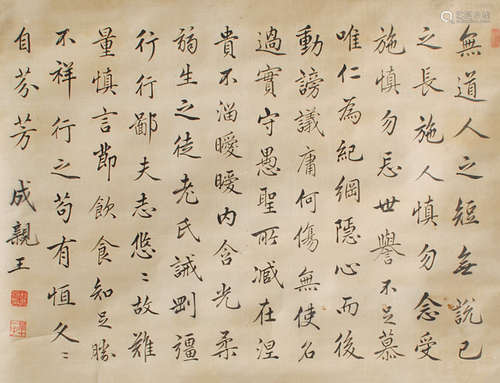 無道人之短無說己
之長施人慎勿念受
施慎勿忘世譽不足慕
唯仁為紀綱隱心而後
動謗議庸何傷無使名
過實守愚聖所臧在涅
貴不淄曖曖內含光柔
弱生之徒老氏誡剛彊
行行鄙夫志悠〻故難
量慎言節飲食知足勝
不祥行之苟有恒久〻
自芬芳 成親王